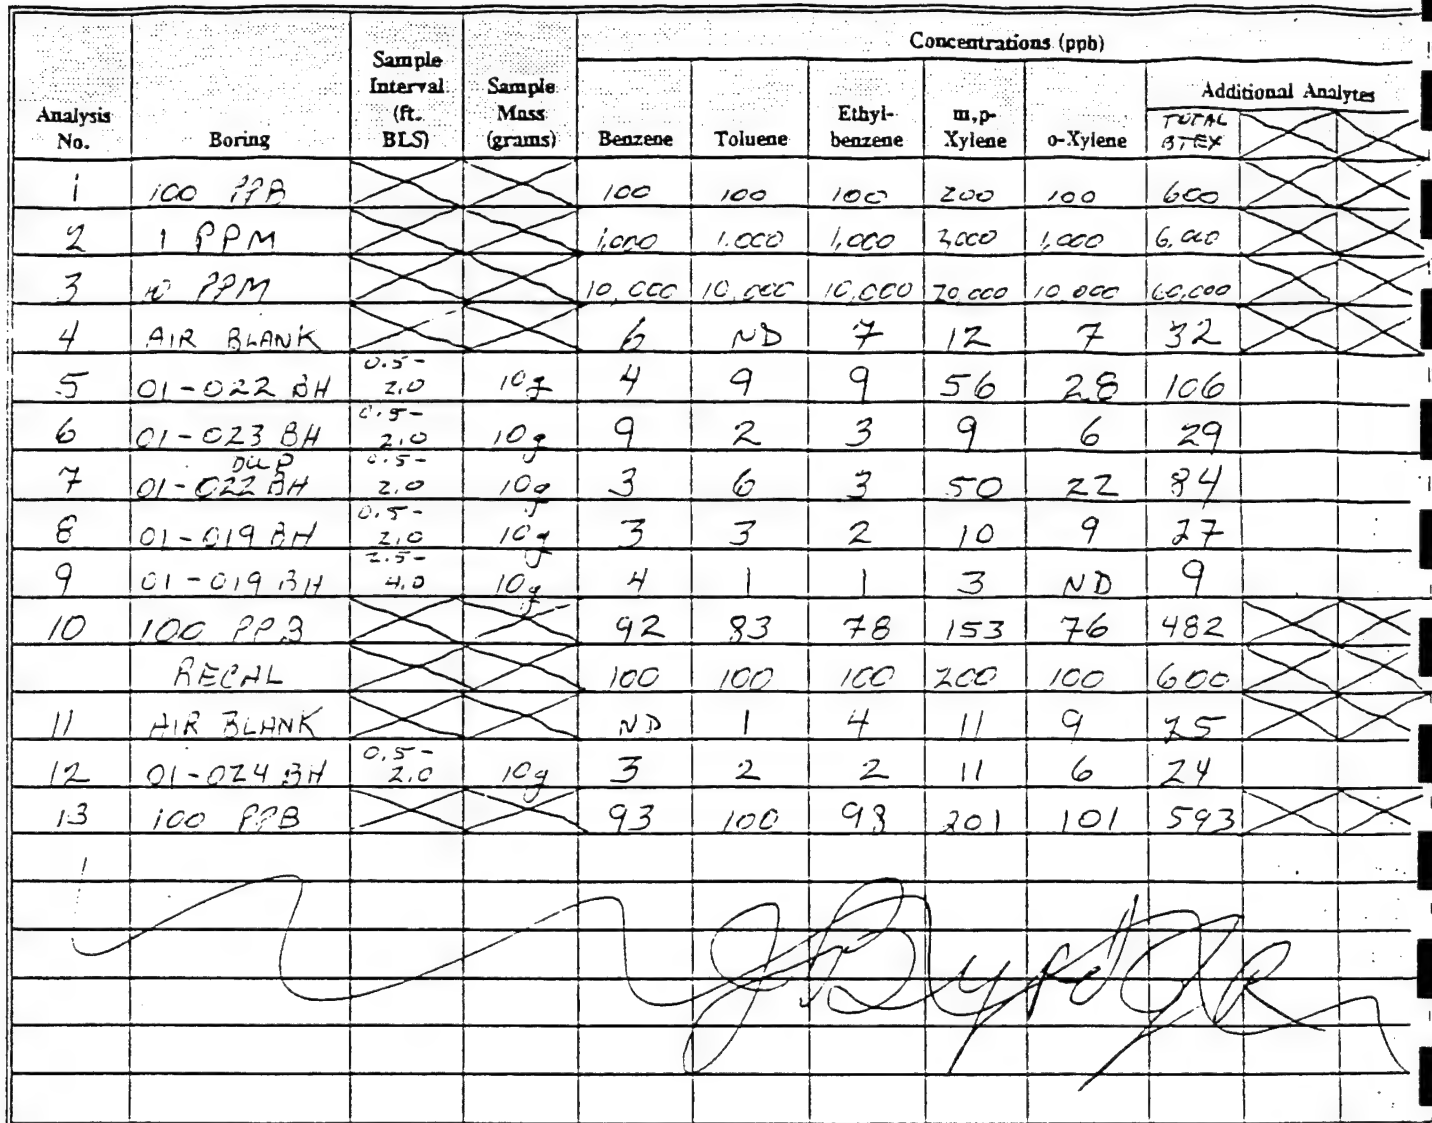 Concentrations (ppb)
Analysis No. Boring Sample Interval (ft. BLS) Sample Mass (grams) Benzene Toluene Ethyl-benzene m,p-Xylene o-Xylene Additional Analytes
TOTAL BTEX
1 100 PPB 100 100 100 200 100 600
2 1 PPM 1,000 1,000 1,000 2,000 1,000 6,000
3 10 PPM 10,000 10,000 10,000 20,000 10,000 60,000
4 AIR BLANK 6 ND 7 12 7 32
5 01-022 BH 0.5-2.0 10g 4 9 9 56 28 106
6 01-023 BH 0.5-2.0 10g 9 2 3 9 6 29
7 01-022 BH DUP 0.5-2.0 10g 3 6 3 50 22 84
8 01-019 BH 0.5-2.0 10g 3 3 2 10 9 27
9 01-019 BH 2.5-4.0 10g 4 1 1 3 ND 9
10 100 PPB 92 83 78 153 76 482
RECAL 100 100 100 200 100 600
11 AIR BLANK ND 1 4 11 9 25
12 01-024 BH 0.5-2.0 10g 3 2 2 11 6 24
13 100 PPB 93 100 98 201 101 593